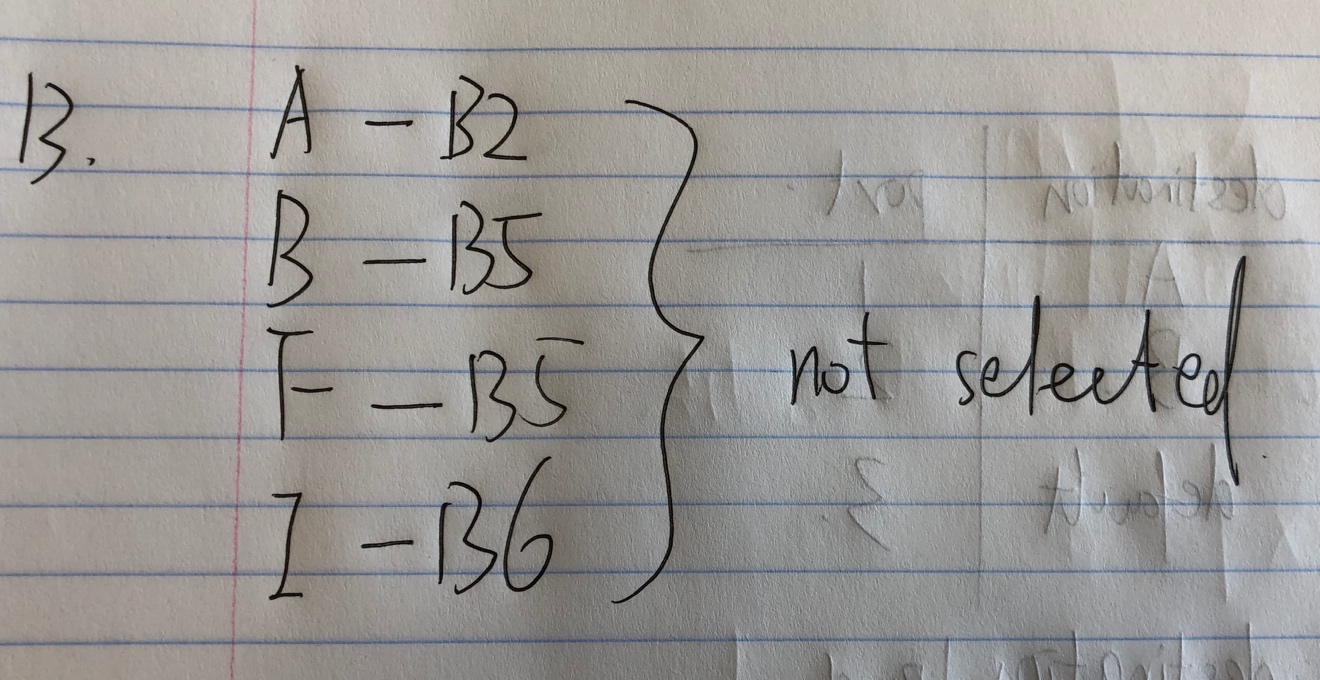 B.
A - B2
B - B5
F - B5
I - B6
not selected